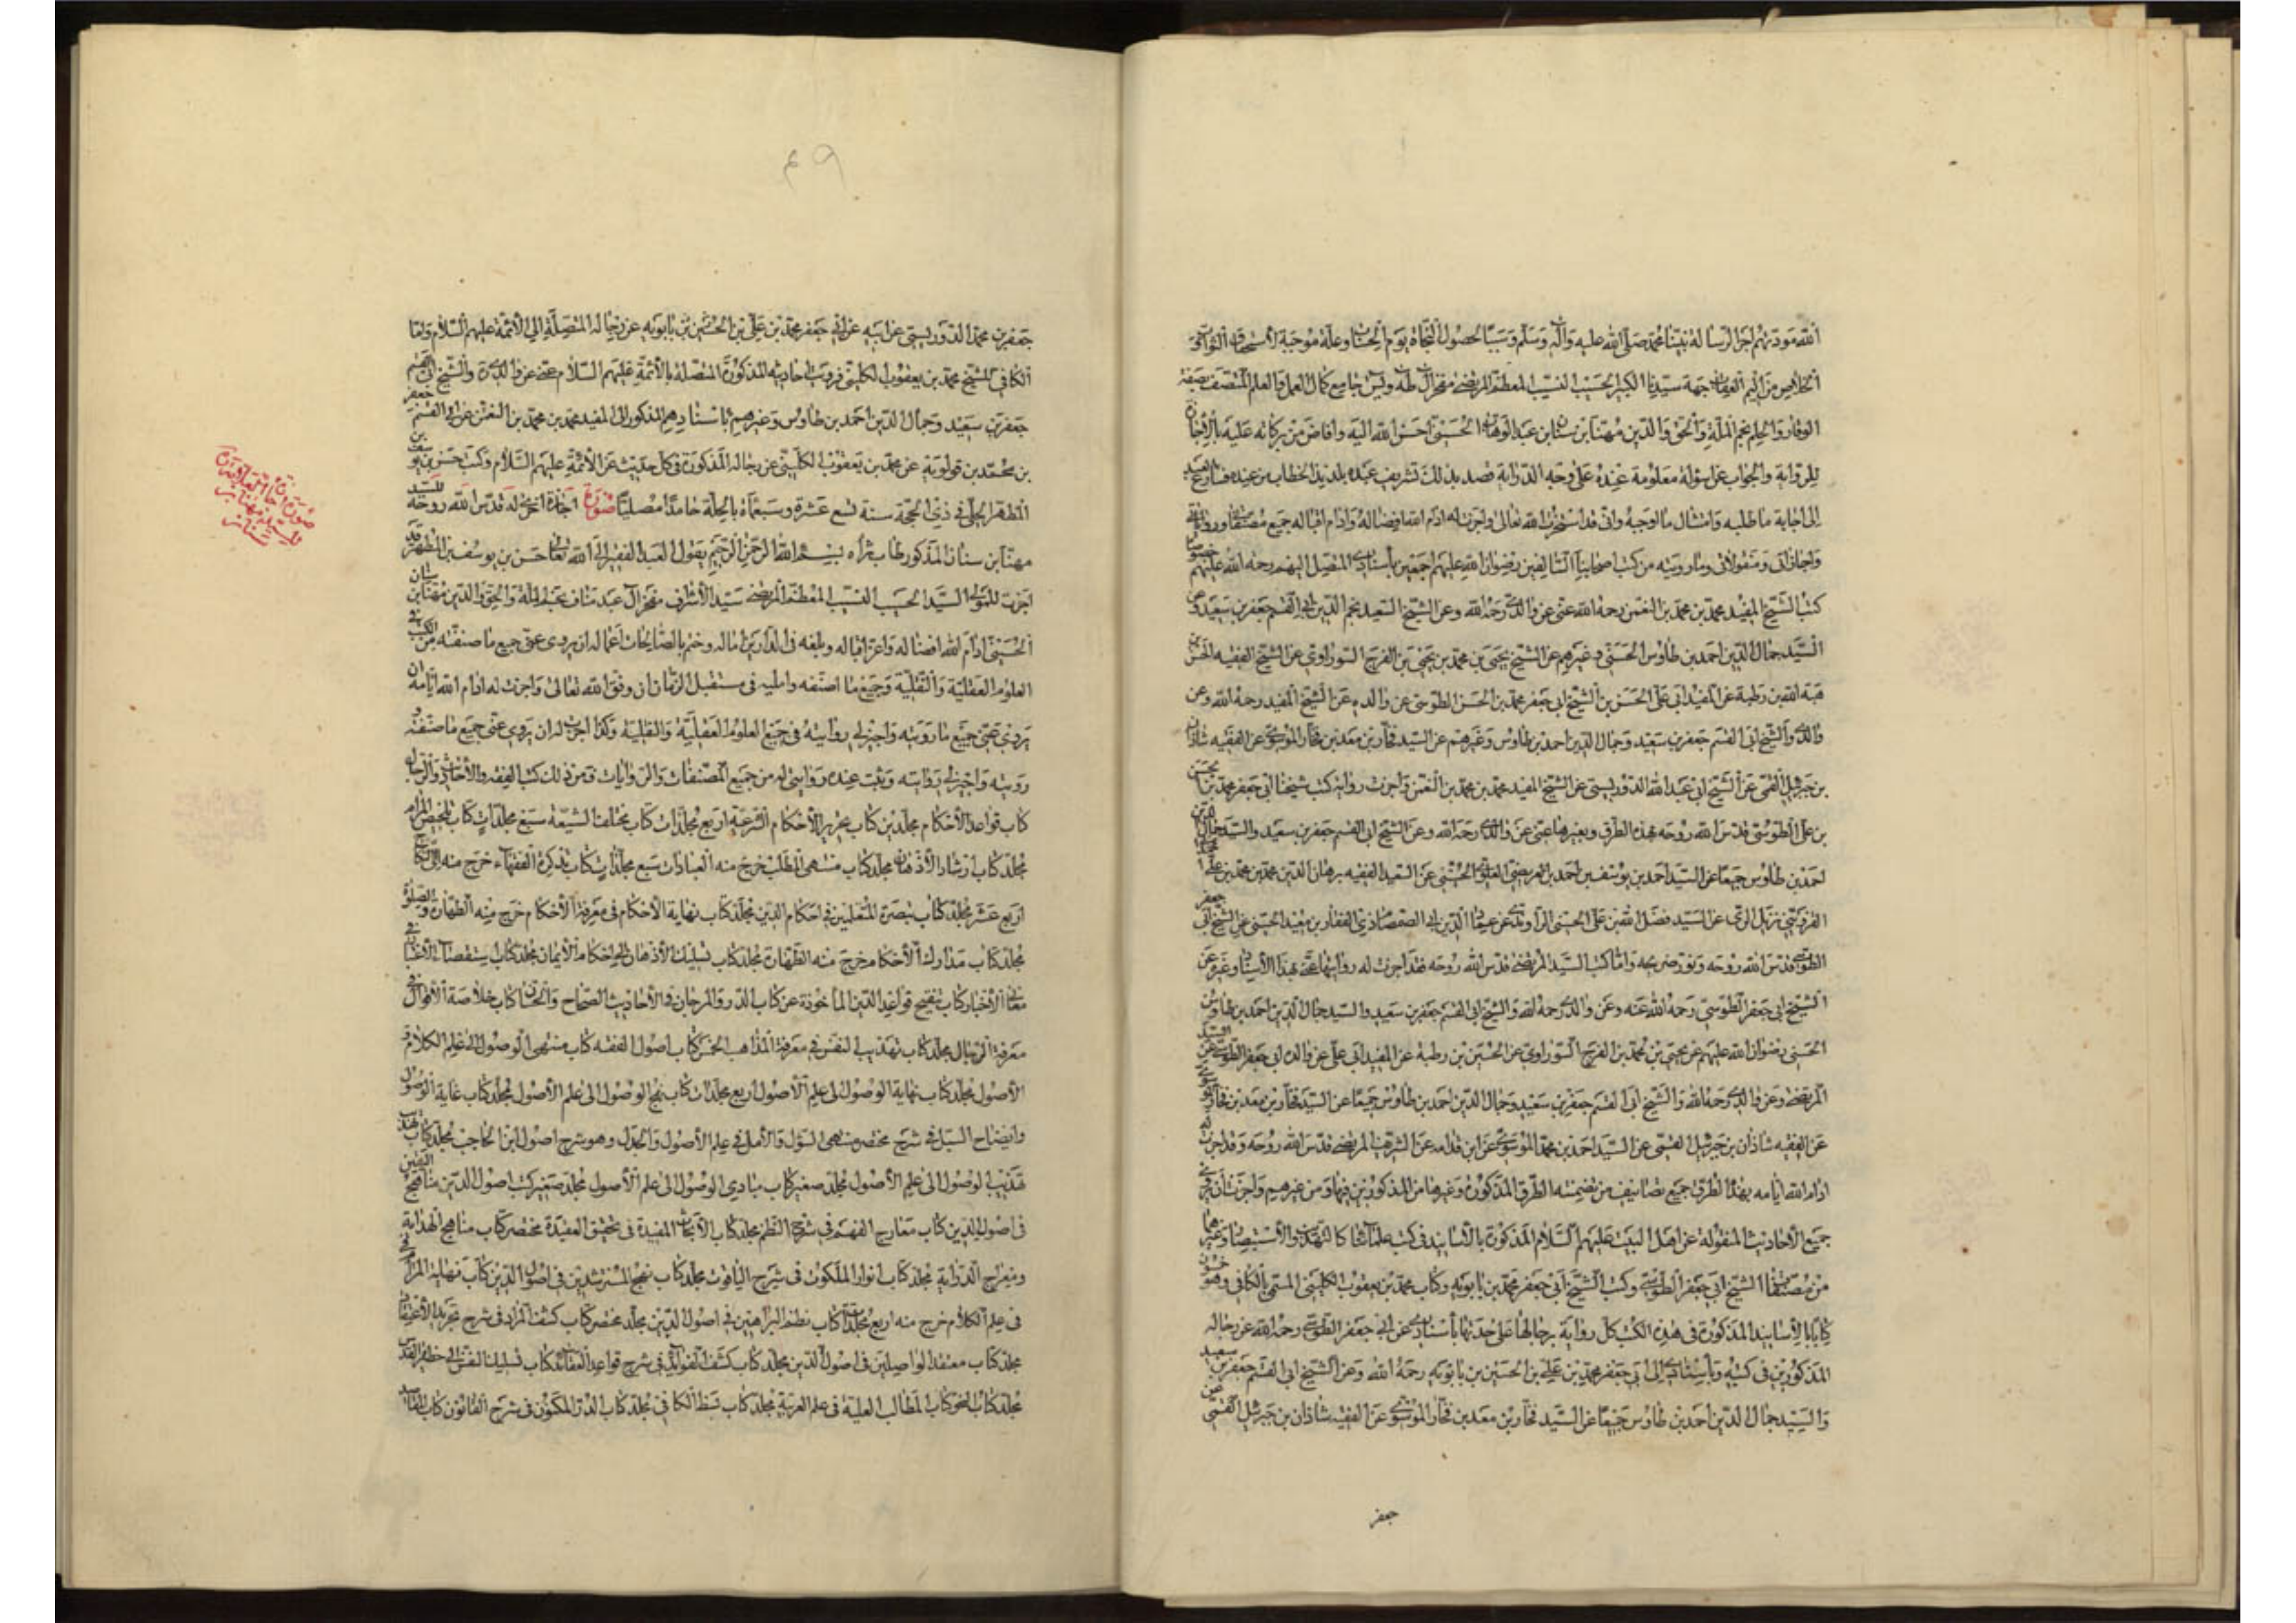 الله مودتهم اجر الرسالة نبينا محمد صلى الله عليه وآله وسلم وسببا لحصول النجاة يوم الحساب وعلة موجبة لاستحقاق الثواب و
الخلاص من اليم العقاب جهة سيدنا الكبير الحسيب النسيب المعظم المرتضى مفخر ال طه ويس جامع كمال العمل والعلم المتصف بصفة
الوقار والحلم نجم الملة والحق والدين مهنا بن سنان بن عبد الوهاب الحسيني احسن الله اليه وافاض من بركاته عليه
للرواية والجواب عن اسولة معلومة عنده على وجه الدراية قصد بذلك تشريف عبده بلذيذ الخطاب من عنده فسارع العبد
الى اجابة ما طلبه وامتثال ما اوجبه واني قد استخرت الله تعالى واجزت له ادام الله افضاله وادام اقباله جميع مصنفاتي ورواياتي
واجازاتي ومنقولاتي وما رويته من كتب اصحابنا السالفين رضوان الله عليهم اجمعين باسنادي المتصل اليهم رحمة الله عليهم خصوصا
كتب الشيخ المفيد محمد بن محمد بن النعمن رحمه الله عني عن والدي رحمه الله وعن الشيخ السعيد نجم الدين ابي القسم جعفر بن سعيد وعن
السيد جمال الدين احمد بن طاوس الحسني وغيرهم عن الشيخ يحيى بن محمد بن يحيى بن الفرج السوراوي عن الشيخ الفقيه الحسن بن
هبة الله بن رطبة عن المفيد ابي علي الحسن بن الشيخ ابي جعفر محمد بن الحسن الطوسي عن والده عن الشيخ المفيد رحمه الله وعن
والدي والشيخ ابي القسم جعفر بن سعيد وجمال الدين احمد بن طاوس وغيرهم عن السيد فخار بن معد بن فخار الموسوي عن الفقيه شاذان
بن جبرئيل القمي عن الشيخ ابي عبد الله الدوريستي عن الشيخ المفيد محمد بن محمد بن النعمن واجزت رواية كتب شيخنا ابي جعفر محمد بن الحسن
بن علي الطوسي قدس الله روحه بهذه الطرق وبغيرها عني عن والدي رحمه الله وعن الشيخ ابي القسم جعفر بن سعيد والسيد جمال الدين
احمد بن طاوس جميعا عن السيد احمد بن يوسف بن احمد بن العريضي العلوي الحسيني عن السيد الفقيه برهان الدين محمد بن محمد بن علي
القزويني نزيل الري عن السيد فضل الله بن علي الحسني الراوندي عن عماد الدين ابي الصمصام ذي الفقار بن معبد الحسني عن الشيخ ابي جعفر
الطوسي قدس الله روحه ونور ضريحه واما كتب السيد المرتضى قدس الله روحه فقد اجزت له روايتها عني بهذا الاسناد وغيره عن
الشيخ ابي جعفر الطوسي رحمة الله عنه وعن والدي رحمه الله والشيخ ابي القسم جعفر بن سعيد والسيد جمال الدين احمد بن طاوس
الحسني رضوان الله عليهم عن يحيى بن محمد بن الفرج السوراوي عن الحسين بن رطبة عن المفيد ابي علي عن والده ابي جعفر الطوسي عن السيد
المرتضى وعن والدي رحمه الله والشيخ ابي القسم جعفر بن سعيد وجمال الدين احمد بن طاوس جميعا عن السيد فخار بن معد بن فخار الموسوي
عن الفقيه شاذان بن جبرئيل القمي عن السيد احمد بن محمد الموسوي عن ابن قدامه عن الشريف المرتضى قدس الله روحه وقد اجزت له
ادام الله ايامه بهذا الطرق جميع تصانيف من تضمنته الطرق المذكورة وغيرها من المذكورين فيها ومن غيرهم واجزت ان
جميع الاحاديث المنقولة عن اهل البيت عليهم السلام المذكورة بالاسانيد في كتب علمائنا كالتهذيب والاستبصار وغيرهما
من مصنفات الشيخ ابي جعفر الطوسي وكتب الشيخ ابي جعفر محمد بن بابويه وكتاب محمد بن يعقوب الكليني المسمى بالكافي وهو خمسون
كتابا بالاسانيد المذكورة في هذه الكتب كل رواية برجالها على حدتها باسنادي عن ابي جعفر الطوسي رحمه الله عن رجاله
المذكورين في كتبه وباسنادي الى ابي جعفر محمد بن علي بن الحسين بن بابويه رحمة الله وعن الشيخ ابي القسم جعفر بن سعيد
والسيد جمال الدين احمد بن طاوس جميعا عن السيد فخار بن معد بن فخار الموسوي عن الفقيه شاذان بن جبرئيل القمي عن
جعفر
٤٩
جعفر بن محمد الدوريستي عن ابيه عن ابي جعفر محمد بن علي بن الحسين بن بابويه عن رجاله المتصلة الى الائمة عليهم السلام واما
الكافي للشيخ محمد بن يعقوب الكليني فرويت احاديثه المذكورة المتصلة بالائمة عليهم السلام عني عن والدي والشيخ ابي القسم
جعفر بن سعيد وجمال الدين احمد بن طاوس وغيرهم باسنادهم المذكور الى المفيد محمد بن محمد بن النعمن عن ابي القسم جعفر
بن محمد بن قولويه عن محمد بن يعقوب الكليني عن رجاله المذكورة في كل حديث عن الائمة عليهم السلام وكتب حسن بن يوسف بن
المطهر الحلي في ذي الحجة سنة تسع عشرة وسبعمأة بالحلة حامدا مصليا صورة اجازة اخرى له قدس الله روحه للسيد
مهنا بن سنان المذكور طاب ثراه بسم الله الرحمن الرحيم يقول العبد الفقير الى الله تعالى حسن بن يوسف بن المطهر قد
اجزت للمولى السيد الحسيب النسيب المعظم المرتضى سيد الاشراف مفخر ال عبد مناف نجم الملة والحق والدين مهنا بن سنان
الحسيني ادام الله افضاله واعز اقباله وبلغه في الدارين اماله وختم بالصالحات اعماله ان يروي عني جميع ما صنفته من الكتب في
العلوم العقلية والنقلية وجميع ما اصنفه وامليه في مستقبل الزمان ان وفق الله تعالى واجزت له ادام الله ايامه ان
يروي عني جميع ما رويته واجيز لي روايته في جميع العلوم العقلية والنقلية وكذا اجزت له ان يروي عني جميع ما صنفته و
رويته واجيز لي روايته وثبت عنده روايتي له من جميع المصنفات والروايات فمن ذلك كتب الفقه والاحاديث والرجال
كتاب قواعد الاحكام مجلدين كتاب تحرير الاحكام الشرعية اربع مجلدات كتاب مختلف الشيعة سبع مجلدات كتاب تلخيص المرام
مجلد كتاب ارشاد الاذهان مجلد كتاب منتهى المطلب خرج منه العبادات سبع مجلدات كتاب تذكرة الفقهاء خرج منه الى النكاح
اربع عشر مجلد كتاب تبصرة المتعلمين في احكام الدين مجلد كتاب نهاية الاحكام في معرفة الاحكام خرج منه الطهارة والصلوة
مجلد كتاب مدارك الاحكام خرج منه الطهارة مجلد كتاب تسليك الاذهان الى احكام الايمان مجلد كتاب استقصاء الاعتبار في
معاني الاخبار كتاب تنقيح قواعد الدين الماخوذة عن كتاب الدر والمرجان في الاحاديث الصحاح والحسان كتاب خلاصة الاقوال في
معرفة الرجال مجلد كتاب تهذيب النفس في معرفة المذاهب الخمس كتاب اصول الفقه كتاب منتهى الوصول الى علم الكلام و
الاصول مجلد كتاب نهاية الوصول الى علم الاصول اربع مجلدات كتاب نهج الوصول الى علم الاصول مجلد كتاب غاية الوصول
وايضاح السبل في شرح مختصر منتهى السؤل والامل في علم الاصول والجدل وهو شرح اصول ابن الحاجب مجلد كتاب
تهذيب الوصول الى علم الاصول مجلد صغير كتاب مبادي الوصول الى علم الاصول مجلد صغير كتب اصول الدين مناهج اليقين
في اصول الدين كتاب معارج الفهم في شرح النظم مجلد كتاب الابحاث المفيدة في تحقيق العقيدة مختصر كتاب مناهج الهداية
ومعراج الدراية مجلد كتاب انوار الملكوت في شرح الياقوت مجلد كتاب نهج المسترشدين في اصول الدين كتاب نهاية المرام
في علم الكلام خرج منه اربع مجلدات كتاب نظم البراهين في اصول الدين مجلد مختصر كتاب كشف المراد في شرح تجريد الاعتقاد
مجلد كتاب معتقد الواصلين في اصول الدين مجلد كتاب كشف الفوائد في شرح قواعد العقائد كتاب تسليك النفس الى حظيرة القدس
مجلد كتاب النحو كتاب المطالب العلية في علم العربية مجلد كتاب بسط الكافي مجلد كتاب الدر المكنون في شرح القانون كتاب المقاصد